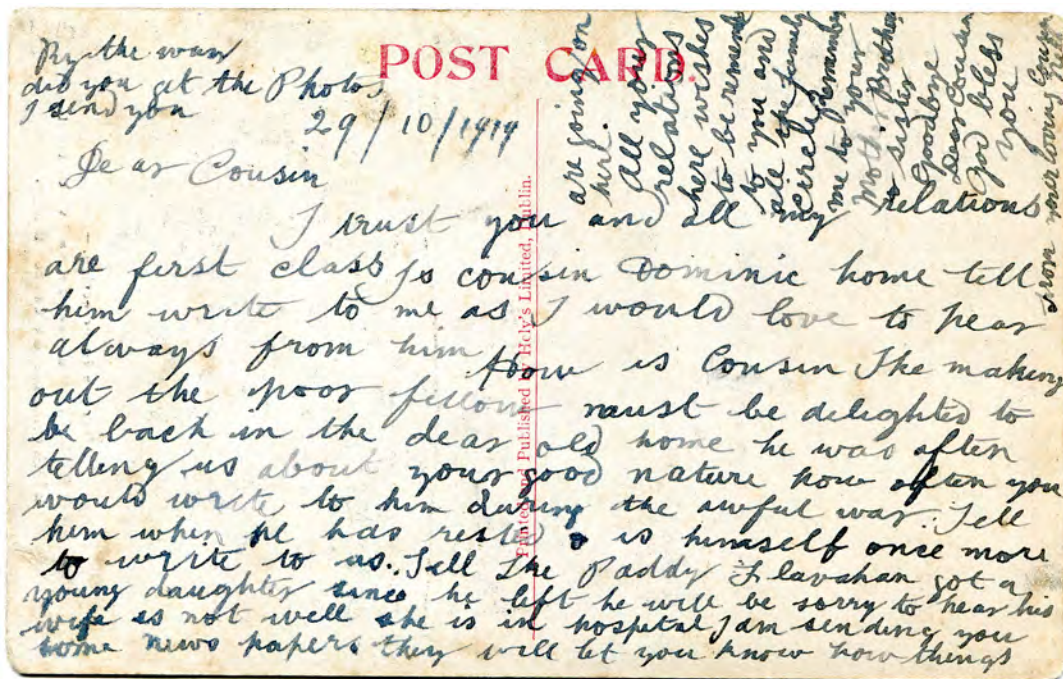 By the way
did you get the Photos
I send you
POST CARD.
29/10/1919
Dear Cousin
I trust you and all my relations
are first class Is cousin Dominic home tell
him write to me as I would love to hear
always from him How is Cousin Ike making
out the poor fellow must be delighted to
be back in the dear old home he was often
telling us about your good nature how often you
would write to him during the awful war. Tell
him when he has rested & is himself once more
to write to us. Tell Ike Paddy Flavahan got a
young daughter since he left he will be sorry to hear his
wife is not well she is in hospital I am sending you
some news papers they will let you know how things
are going on
here.
All your
relations
here wishes
to be remembered
to you and
all the family
circle
me to your
Mother Brother
& sister
Goodbye
Dear Cousin
God bless
you
from your loving Cousin
Printed and Published by Hely's Limited, Dublin.